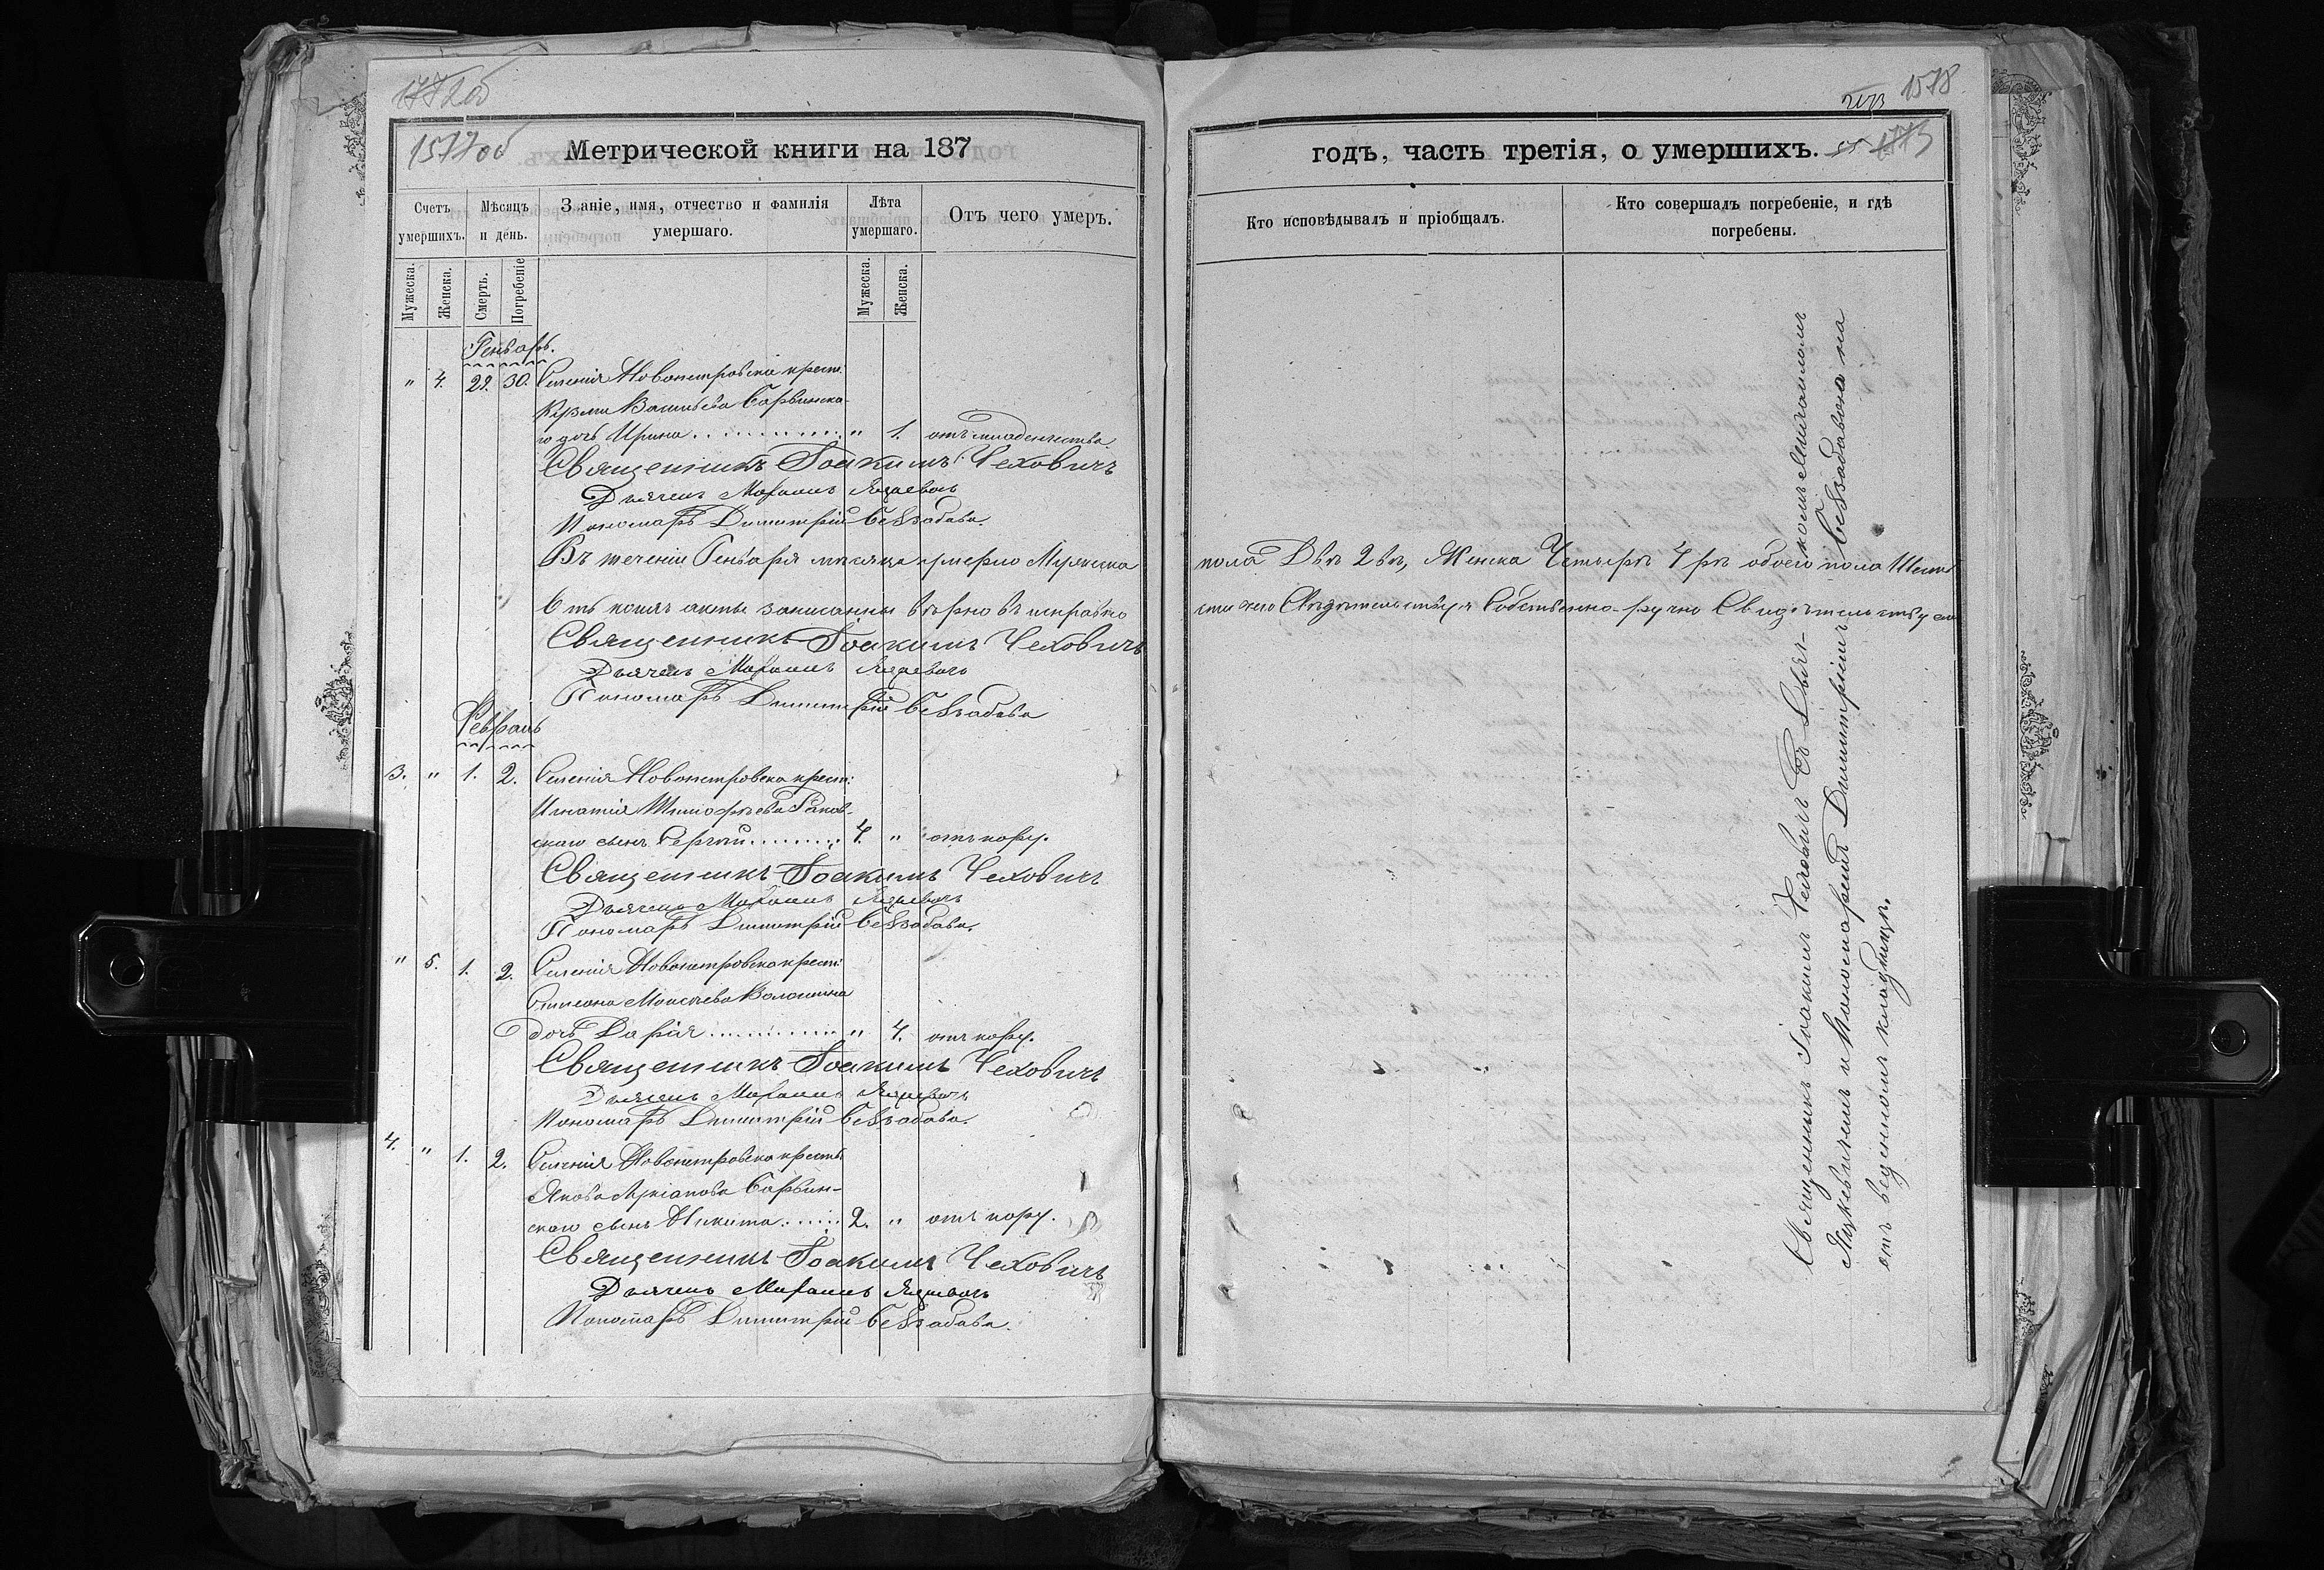 1772об
1577об
Метрической книги на 187
Счетъ умершихъ.
Мѣсяцъ и день.
Званіе, имя, отчество и фамилія умершаго.
Лѣта умершаго.
Отъ чего умеръ.
Мужеска.
Женска.
Смерть.
Погребеніе
Мужеска.
Женска.
Генварь.
" 4. 29. 30. Селенія Новопетровска крест.
Василіева Сорвинска-
го дочь Ирина " 1. отъ младенчества
Священникъ Іоакимъ Чеховичъ
Дьячекъ Михаилъ Яцкевичъ
Пономарь Димитрій Беззабава.
Въ теченіи Генваря мѣсяца умерло Мужеска
акты записанны вѣрно въ исправно
Священникъ Іоакимъ Чеховичъ
Дьячекъ Михаилъ Яцкевичъ
Пономарь Димитрій Беззабава
Февраль
3. " 1. 2. Селенія Новопетровска крест:
Игнатія Тимофѣева Раков-
скаго сынъ Сергѣй 4. " отъ кору.
Священникъ Іоакимъ Чеховичъ
Дьячекъ Михаилъ Яцкевичъ
Пономарь Димитрій Беззабава.
" 5. 1. 2. Селенія Новопетровска крест:
Симеона Моисѣева Волошина
дочь Дарія " 4. отъ кору.
Священникъ Іоакимъ Чеховичъ
Дьячекъ Михаилъ Яцкевичъ
Пономарь Димитрій Беззабава.
4. " 1. 2. Селенія Новопетровска крест:
Якова Лукіанова Сорвин-
скаго сынъ Никита 2. " отъ кору.
Священникъ Іоакимъ Чеховичъ
Дьячекъ Михаилъ Яцкевичъ
Пономарь Димитрій Беззабава.
1578
1773
годъ, часть третія, о умершихъ.
Кто исповѣдывалъ и пріобщалъ.
Кто совершалъ погребеніе, и гдѣ погребены.
пола Двѣ 2вѣ, Женска Четырѣ 4рѣ обоего пола Шесть
Собственно-ручно Свидѣтельствуем
Священникъ Іоакимъ Чеховичъ Съ Дьяч-
комъ Михаиломъ
Яцкевичемъ и Пономаремъ Димитріемъ Беззабавою на
отъ веденномъ кладбищѣ.